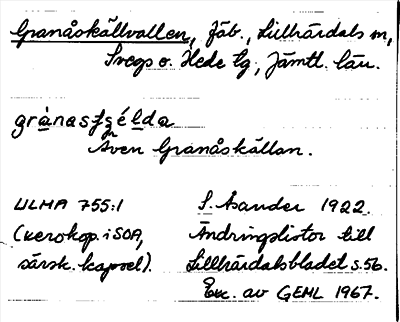 Granåskällvallen, fäb., Lillhärdals sn,
Svegs o. Hede tg., Jämtl. län.
grànasʃɛ́lda
Även Granåskällan.
ULMA 755:1 S. Asander 1922.
(xerokop. i SOA, Ändringslistor till
särsk. kapsel). Lillhärdalsbladet s. 56.
Exc. av GEHL 1967.